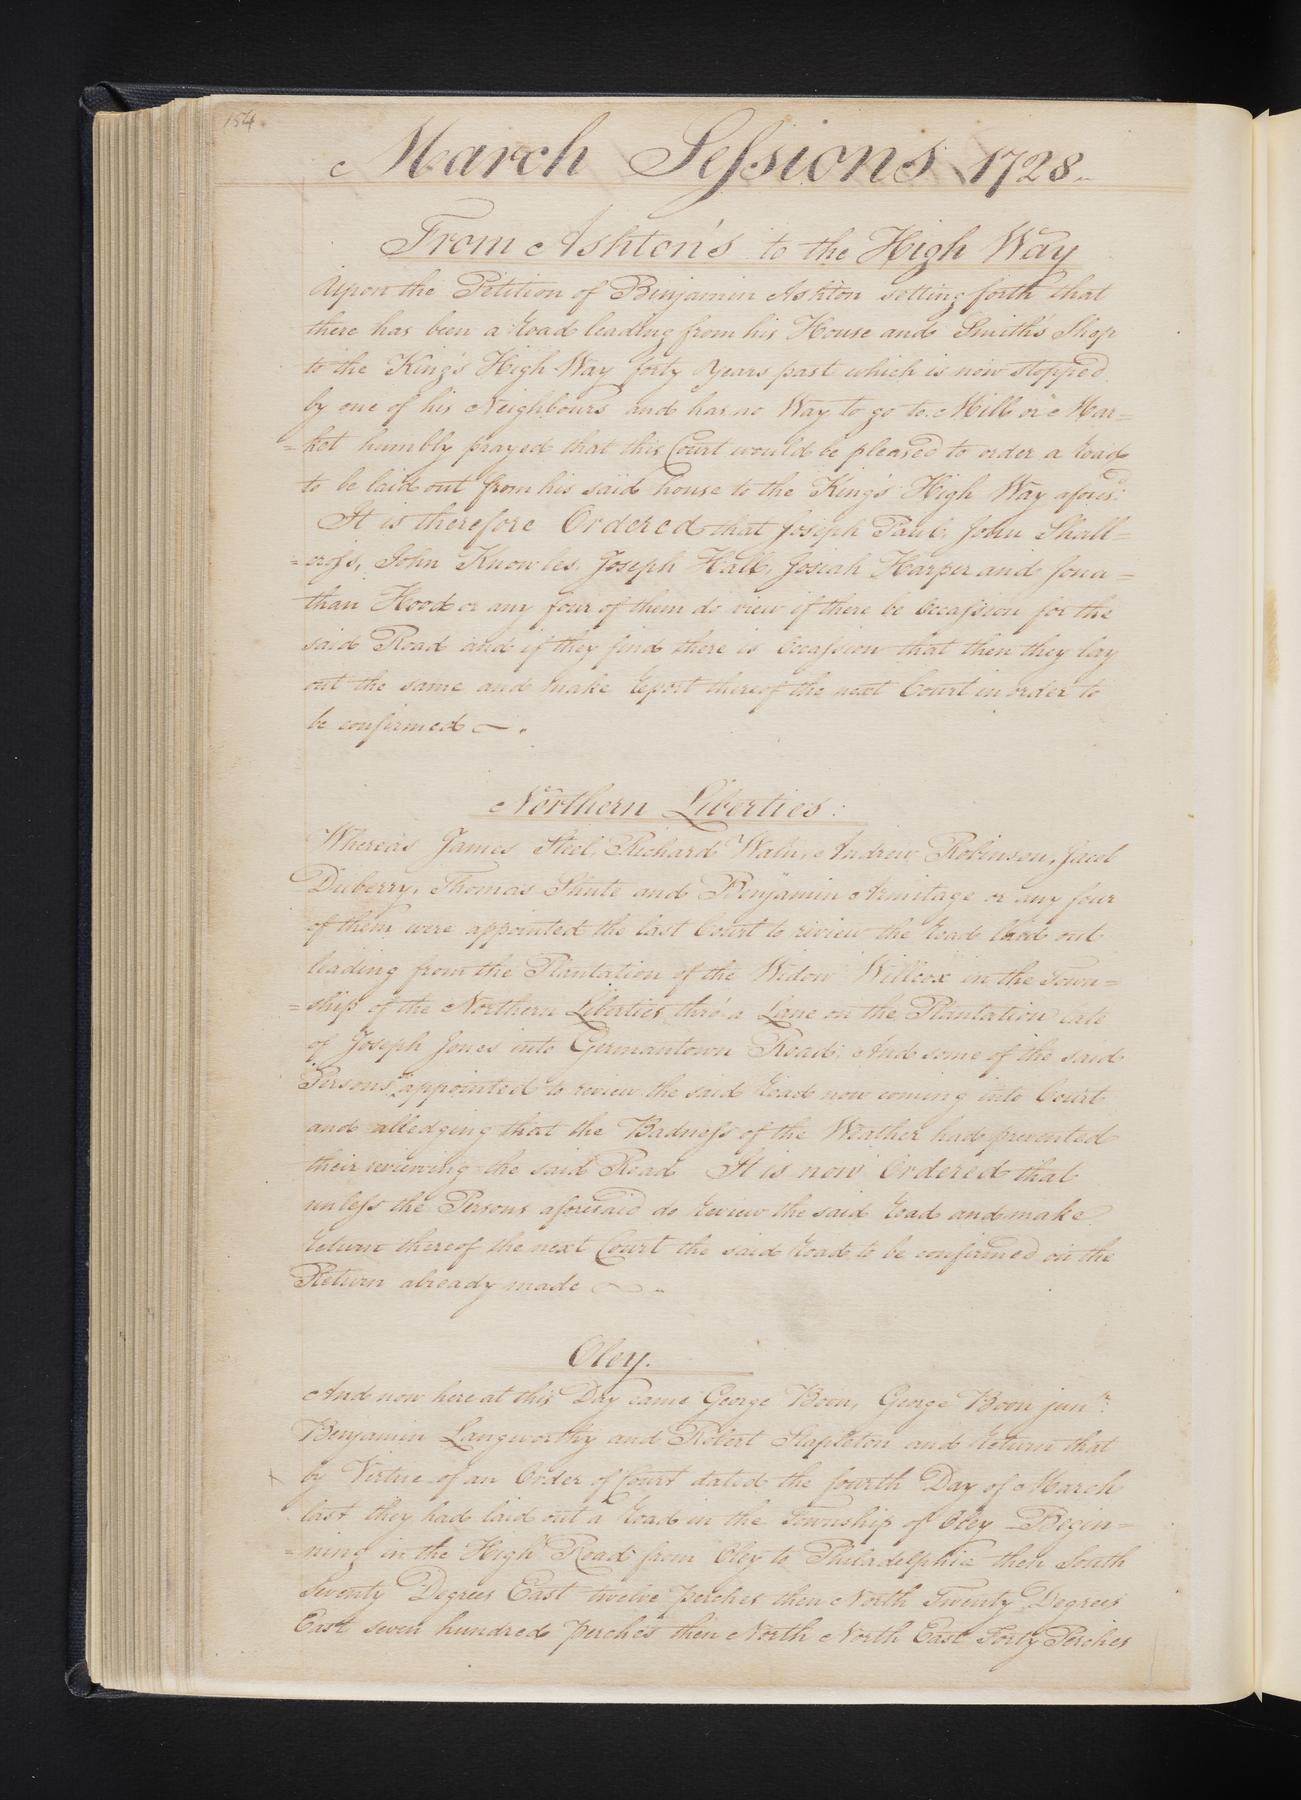 154
March Sessions 1728
From Ashton's to the High Way
Upon the Petition of Benjamin Ashton setting forth that
there has been a Road leading from his House and Smith's Shop
to the King's High Way forty Years past which is now stopped
by one of his Neighbours and has no Way to go to Mill or Mar=
=ket humbly prayed that this Court would be pleased to order a Road
to be laid out from his said house to the King's High Way aforesd.
It is therefore Ordered that Joseph Paul, John Shall=
=cross, John Knowles, Joseph Hall, Josiah Harper and Jona=
than Hood or any four of them do view if there be Occassion for the
said Road and if they find there is Occassion that then they lay
out the same and make Report thereof the next Court in order to
be confirmed
Northern Liberties:
Whereas James Steel, Richard Waln, Andrew Robinson, Jacob
Duberry, Thomas Shute and Benjamin Armitage or any four
of them were appointed the last Court to review the Road laid out
leading from the Plantation of the Widow Willcox in the Town=
=ship of the Northern Liberties thro' a Lane on the Plantation late
of Joseph Jones into Germantown Road; And some of the said
Persons appointed to review the said Road now coming into Court
and alledging that the Badness of the Weather had prevented
their reviewing the said Road It is now Ordered that
unless the Persons aforesaid do Review the said Road and make
Return thereof the next Court the said Road to be confirmed on the
Return already made
Oley.
And now here at this Day came George Boon, George Boon junr.
Benjamin Langworthy and Robert Stapleton and Return that
by Virtue of an Order of Court dated the fourth Day of March
last they had laid out a Road in the Township of Oley Begin=
=ning in the High Road from Oley to Philadelphia then South
Seventy Degrees East twelve perches then North Twenty Degrees
East seven hundred perches then North North East Forty Perches